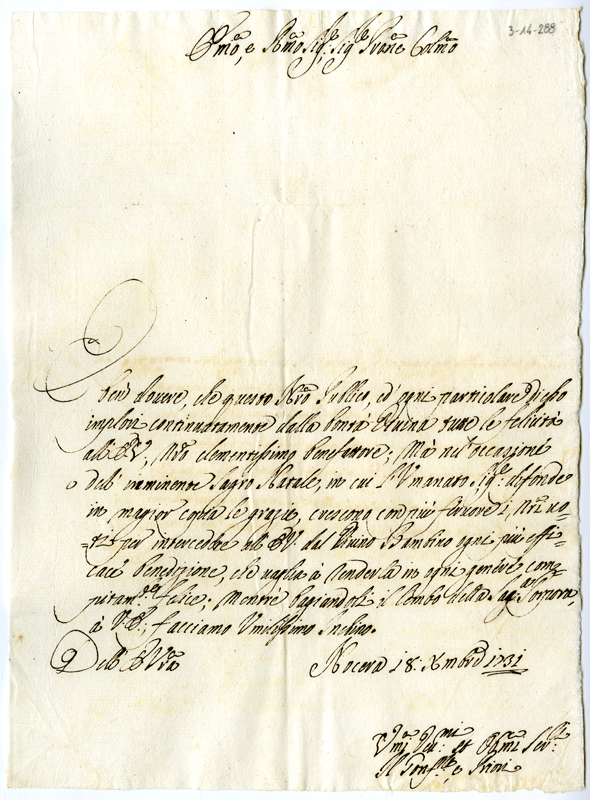 3-14-288
Em̃o, e Rm̃o Sig.re Sig.re Pron̄e Colm̃o
È ben dovere, che questo Nr̃o Publico, ed' ogni particolare d'esso
implori continuatamente dalla bontà Divina tutte le felicità
all' E.V., Nr̃o clementissimo benefattore; Mà nell' occasione
dell' imminente Sagro Natale, in cui l'Vmanato Sig.re difonde
in magior copia le grazie, crescono con più fervore i Nr̃i vo=
=ti per intercedere all' E.V. dal Divino Bambino ogni più effi=
cace benedizione, che vaglia à renderla in ogni genere com=
pitam.te felice; Mentre baciandogli il lembo della Sag. Porpora,
à V.E., facciamo Vmilissimo Inchino.
Dell' E.V.ra
Nocera 18: Xmbre 1731
Vmi Dev.mi et Obl.mi Ser.ri
Il Gonf.re, e Priori